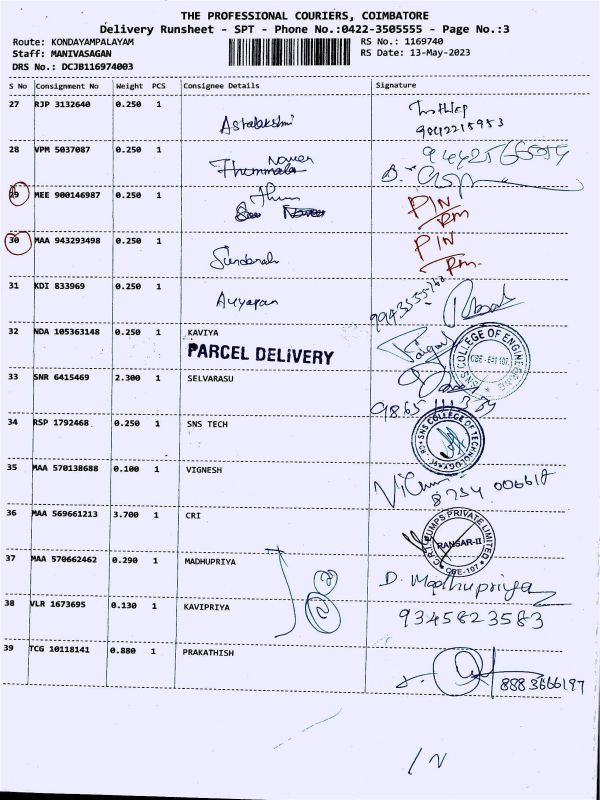 THE PROFESSIONAL COURIERS, COIMBATORE
Delivery Runsheet - SPT - Phone No.:0422-3505555 - Page No.:3
Route: KONDAYAMPALAYAM RS No.: 1169740
Staff: MANIVASAGAN RS Date: 13-May-2023
DRS No.: DCJB116974003
S No Consignment No Weight PCS Consignee Details Signature
27 RJP 3132640 0.250 1
9842215953
28 VPM 5037087 0.250 1
29 MEE 900146987 0.250 1 PIN
30 MAA 943293498 0.250 1 PIN
31 KDI 833969 0.250 1 Ayyapan
32 NDA 105363148 0.250 1 KAVIYA
PARCEL DELIVERY
SNS COLLEGE OF ENGINEERING
CBE - 641 107
33 SNR 6415469 2.300 1 SELVARASU
34 RSP 1792468 0.250 1 SNS TECH
SNS COLLEGE OF TECHNOLOGY
35 MAA 570138688 0.100 1 VIGNESH
8754 006618
36 MAA 569661213 3.700 1 CRI
C.R.I. PUMPS PRIVATE LIMITED
RANSAR-II
CBE-107
37 MAA 570662462 0.290 1 MADHUPRIYA
D. Madhupriya
38 VLR 1673695 0.130 1 KAVIPRIYA
9345823583
39 TCG 10118141 0.880 1 PRAKATHISH
8883666197